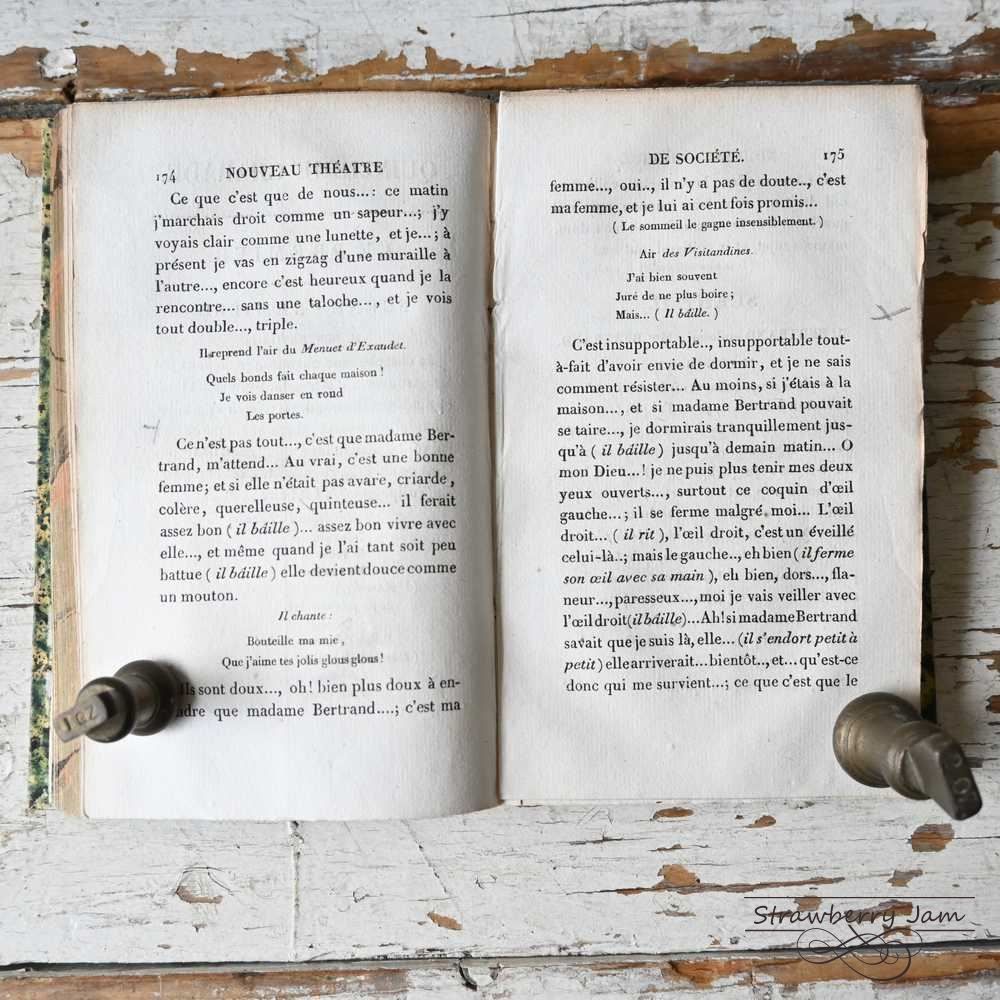 174 NOUVEAU THÉATRE
Ce que c'est que de nous...: ce matin
j'marchais droit comme un sapeur...; j'y
voyais clair comme une lunette, et je...; à
présent je vas en zigzag d'une muraille à
l'autre..., encore c'est heureux quand je la
rencontre... sans une taloche..., et je vois
tout double..., triple.
Il reprend l'air du Menuet d'Exaudet.
Quels bonds fait chaque maison!
Je vois danser en rond
Les portes.
Ce n'est pas tout..., c'est que madame Ber-
trand, m'attend... Au vrai, c'est une bonne
femme; et si elle n'était pas avare, criarde,
colère, querelleuse, quinteuse... il ferait
assez bon ( il bâille )... assez bon vivre avec
elle..., et même quand je l'ai tant soit peu
battue ( il bâille ) elle devient douce comme
un mouton.
Il chante:
Bouteille ma mie,
Que j'aime tes jolis glous glous!
Ils sont doux..., oh! bien plus doux à en-
dre que madame Bertrand....; c'est ma
DE SOCIÉTÉ. 175
femme..., oui.., il n'y a pas de doute.., c'est
ma femme, et je lui ai cent fois promis...
( Le sommeil le gagne insensiblement. )
Air des Visitandines.
J'ai bien souvent
Juré de ne plus boire;
Mais... ( Il bâille. )
C'est insupportable.., insupportable tout-
à-fait d'avoir envie de dormir, et je ne sais
comment résister... Au moins, si j'étais à la
maison..., et si madame Bertrand pouvait
se taire..., je dormirais tranquillement jus-
qu'à ( il bâille ) jusqu'à demain matin... O
mon Dieu...! je ne puis plus tenir mes deux
yeux ouverts..., surtout ce coquin d'œil
gauche...; il se ferme malgré moi... L'œil
droit... ( il rit ), l'œil droit, c'est un éveillé
celui-là..; mais le gauche.., eh bien ( il ferme
son œil avec sa main ), eh bien, dors..., fla-
neur..., paresseux..., moi je vais veiller avec
l'œil droit (il bâille)... Ah! si madame Bertrand
savait que je suis là, elle... (il s'endort petit à
petit) elle arriverait... bientôt.., et... qu'est-ce
donc qui me survient...; ce que c'est que le
1 OZ
Strawberry Jam